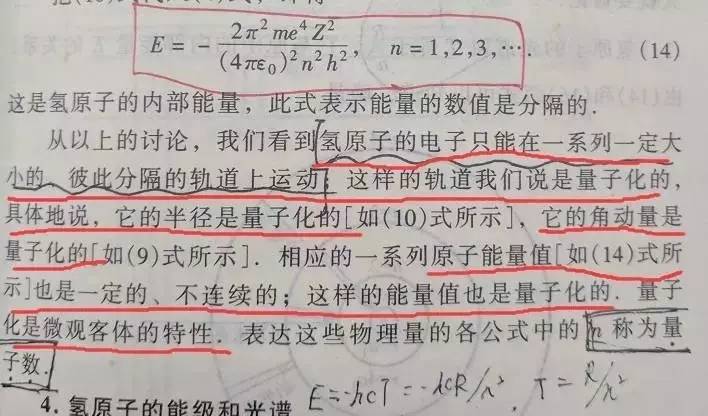 E = - 2π²me⁴Z² / (4πε₀)²n²h², n = 1,2,3,···. (14)
这是氢原子的内部能量，此式表示能量的数值是分隔的.
从以上的讨论，我们看到氢原子的电子只能在一系列一定大
小的、彼此分隔的轨道上运动；这样的轨道我们说是量子化的，
具体地说，它的半径是量子化的[如(10)式所示]，它的角动量是
量子化的[如(9)式所示]．相应的一系列原子能量值[如(14)式所
示]也是一定的、不连续的；这样的能量值也是量子化的．量子
化是微观客体的特性．表达这些物理量的各公式中的 n 称为量
子数.
4. 氢原子的能级和光谱 E=-hcT=-hcR/n² T=R/n²